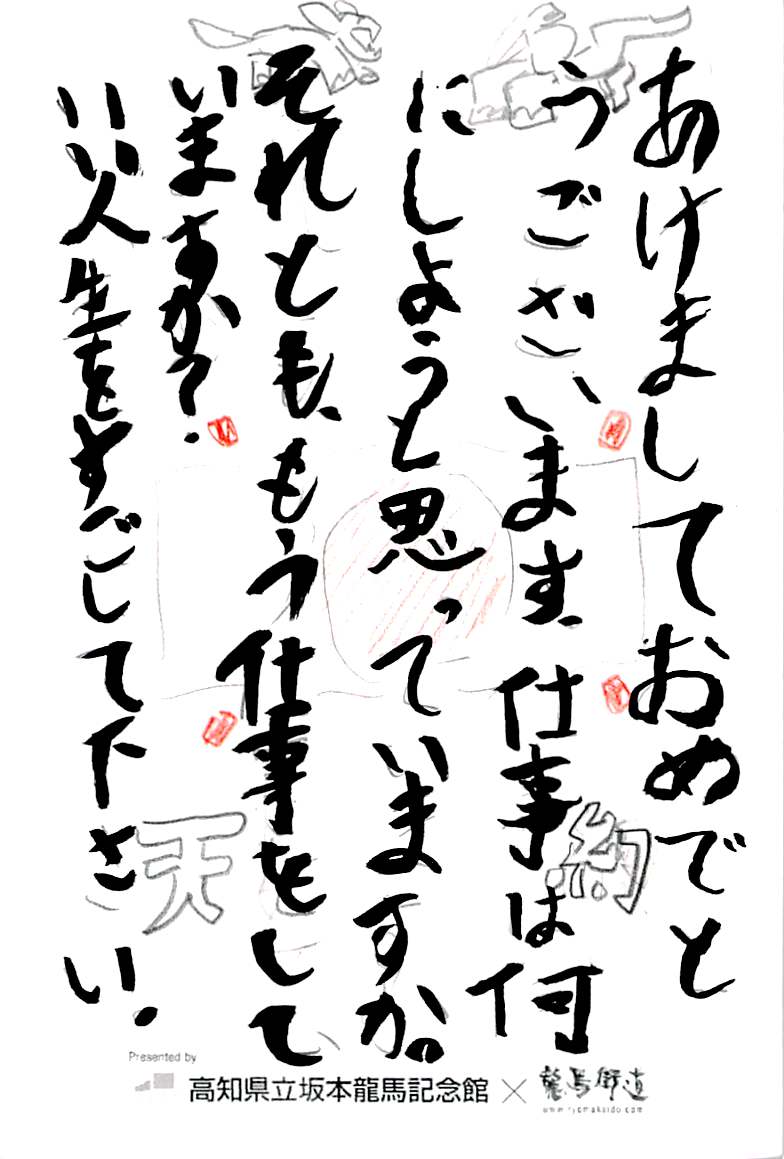 あけましておめでと
うございます。仕事は何
にしようと思っていますか。
それとも、もう仕事をして
いますか?
いい人生をすごして下さい。
約
天
Presented by
高知県立坂本龍馬記念館×龍馬街道
www.ryomakaido.com